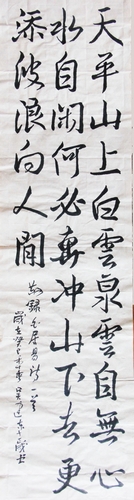 天平山上白雲泉雲自無心
水自閑何必奔冲山下去更
添波浪向人間
敬錄白居易詩一首
歲在癸巳